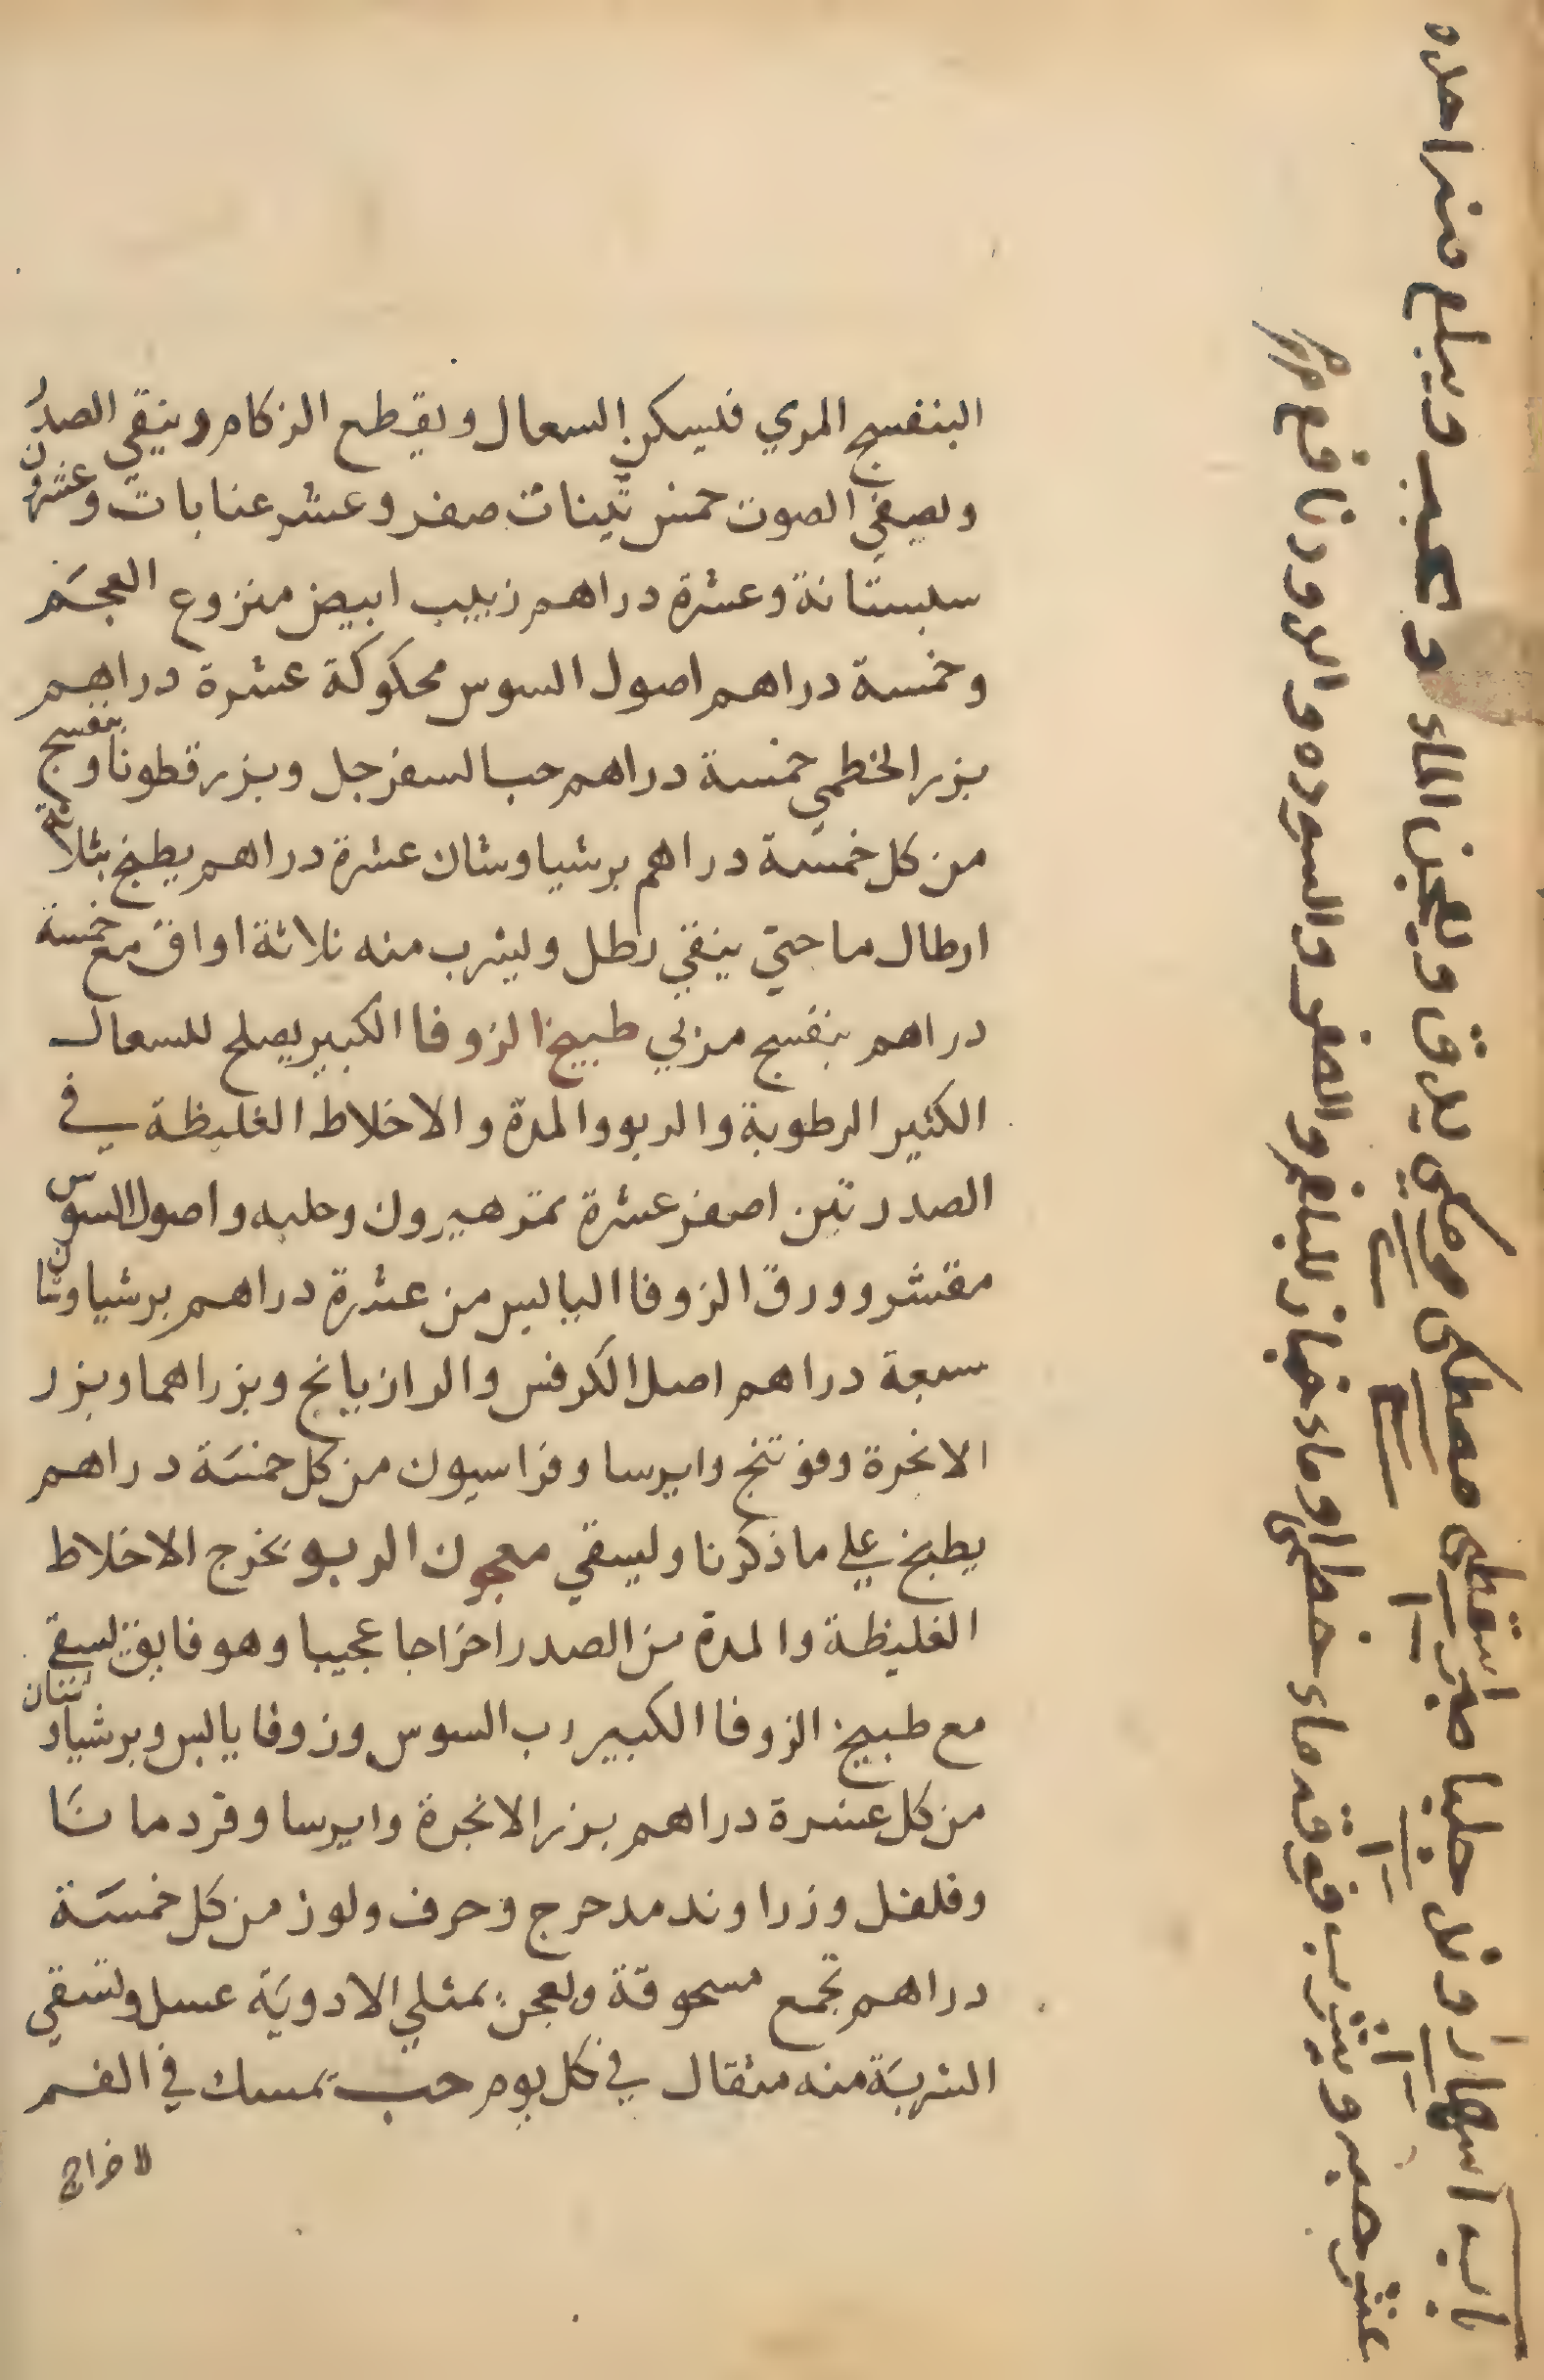 البنفسج المربي فليسكن السعال ويقطع الزكام وينقي الصدر
ويصفي الصوت خمس تينات صفر وعشر عنابات وعشرون
سبستانة وعشرة دراهم زبيب ابيض منزوع العجم
وخمسة دراهم اصول السوس محكوكة عشرة دراهم
بزر الخطمي خمسة دراهم حب السفرجل وبزر قطونا وبنفسج
من كل خمسة دراهم برشياوشان عشرة دراهم يطبخ بثلاثة
ارطال ما حتي ينقي رطل ويشرب منه ثلاثة اواق مع خمسة
دراهم بنفسج مربي طبيخ الزوفا الكبير يصلح للسعال
الكثير الرطوبة والربو والمدة والاخلاط الغليظة في
الصدر تين اصفر عشرة تمر هيرون وحلبه واصول السوس
مقشر وورق الزوفا اليابس من عشرة دراهم برشياوشان
سبعة دراهم اصل الكرفس والرازيانج وبزراهما وبزر
الانجرة وفوتنج وايرسا وفراسيون من كل خمسة دراهم
يطبخ علي ما ذكرنا وليسقي معجون الربو يخرج الاخلاط
الغليظة والمدة من الصدر اخراجا عجيبا وهو فايق يسقي
مع طبيخ الزوفا الكبير رب السوس وزوفا يابس وبرشياوشان
من كل عشرة دراهم بزر الانجرة وايرسا وقردمانا
وفلفل وزراوند مدحرج وحرف ولوز من كل خمسة
دراهم تجمع مسحوقة ويعجن بمثلي الادوية عسل ويسقي
الشربة منه مثقال في كل يوم حب يمسك في الفم
لاخراج
باب اسهار وند حلبا صبر اسقطى مصطكى مرمكي يدق ويعجن الماء ويحبب ويبلع منه احده
عشر صبر ويشرب فوقه ماء خطمى او ماء خباز للبلغم والصفر والسوده والدود نافع